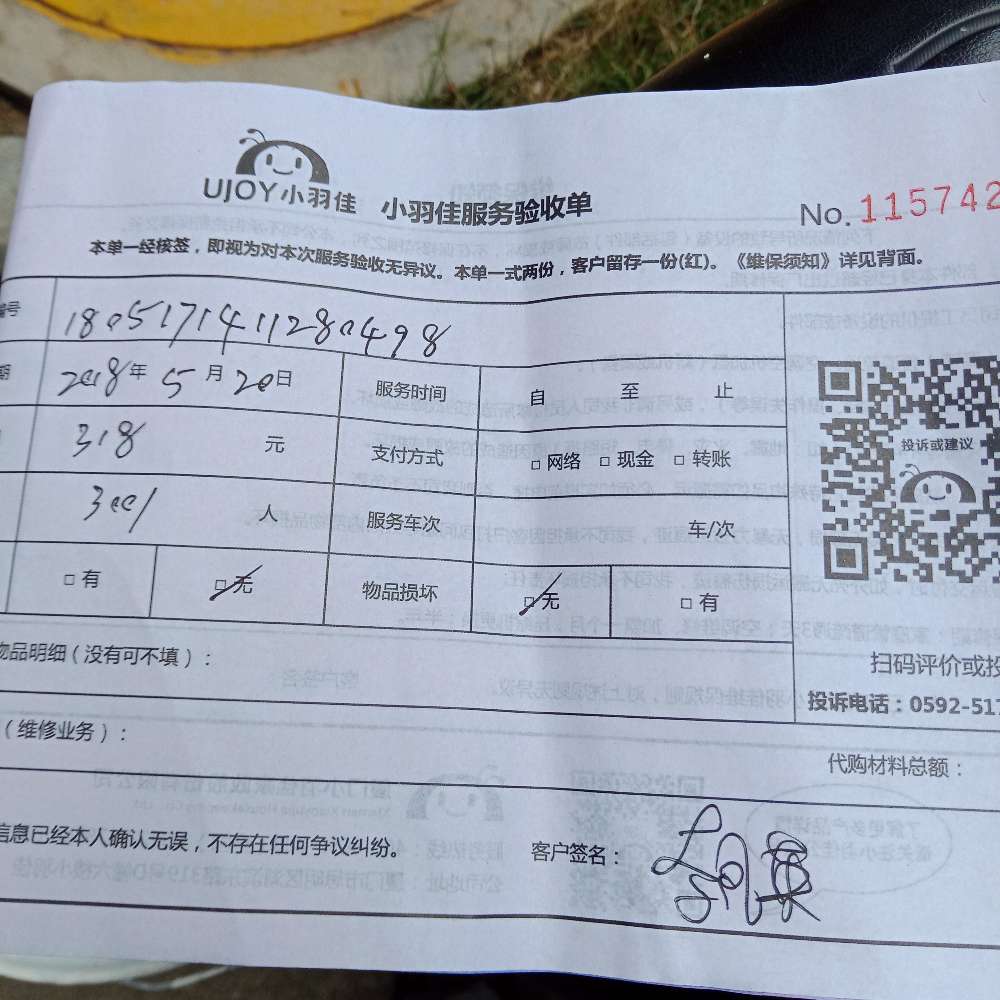 UJOY小羽佳 小羽佳服务验收单 No. 115742
本单一经核签，即视为对本次服务验收无异议。本单一式两份，客户留存一份(红)。《维保须知》详见背面。
编号 1805171411280498
期 2018年 5月 20日 服务时间 自 至 止
318 元 支付方式 □ 网络 □ 现金 □ 转账
人 服务车次 车/次
□ 有 □ 无 物品损坏 □ 无 □ 有
投诉或建议
物品明细（没有可不填）：
扫码评价或投
投诉电话：0592-517
（维修业务）：
代购材料总额：
信息已经本人确认无误，不存在任何争议纠纷。 客户签名：